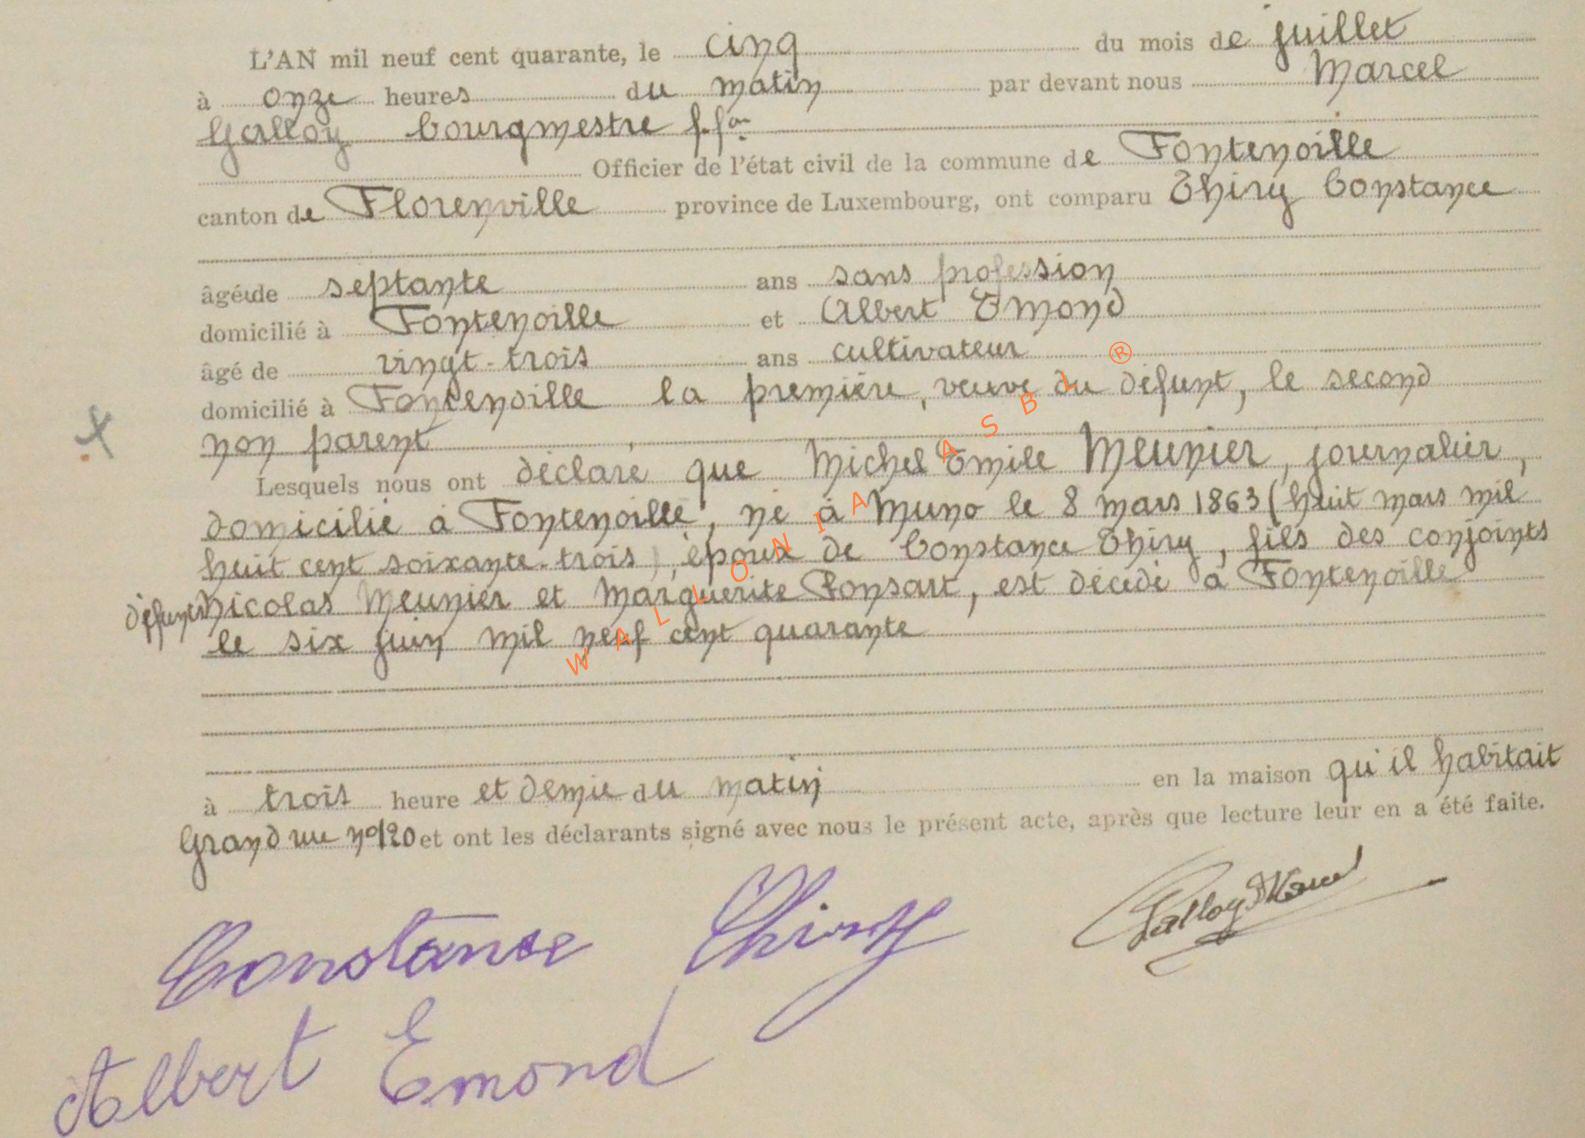 L'AN mil neuf cent quarante, le cinq du mois de juillet
à onze heures du matin par devant nous Marcel
Galloy bourgmestre f.fon
Officier de l'état civil de la commune de Fontenoille
canton de Florenville province de Luxembourg, ont comparu Thiry Constance
âgée de septante ans sans profession
domicilié à Fontenoille et Albert Emond
âgé de vingt-trois ans cultivateur
domicilié à Fontenoille la première, veuve du défunt, le second
non parent
Lesquels nous ont déclaré que Michel Emile Meunier, journalier,
domicilié à Fontenoille, né à Muno le 8 mars 1863 (huit mars mil
huit cent soixante-trois), époux de Constance Thiry, fils des conjoints
défunts Nicolas Meunier et Marguerite Ponsart, est décédé à Fontenoille
le six juin mil neuf cent quarante
à trois heure et demie du matin en la maison qu'il habitait
Grand rue n° 120 et ont les déclarants signé avec nous le présent acte, après que lecture leur en a été faite.
Constance Thiry
Galloy Marcel
Albert Emond
WALLONIA ASBL ®